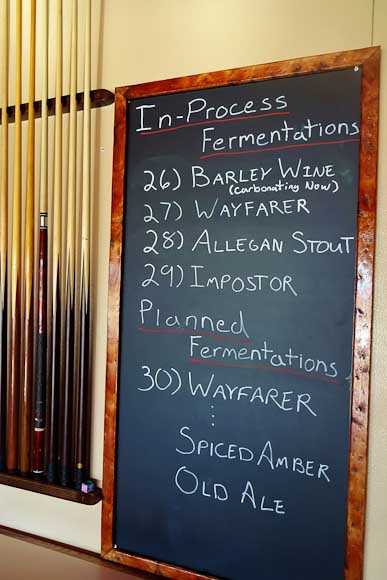 In-Process
Fermentations
26) Barley Wine
(carbonating now)
27) Wayfarer
28) Allegan Stout
29) Impostor
Planned
Fermentations
30) Wayfarer
⋮
Spiced Amber
Old Ale